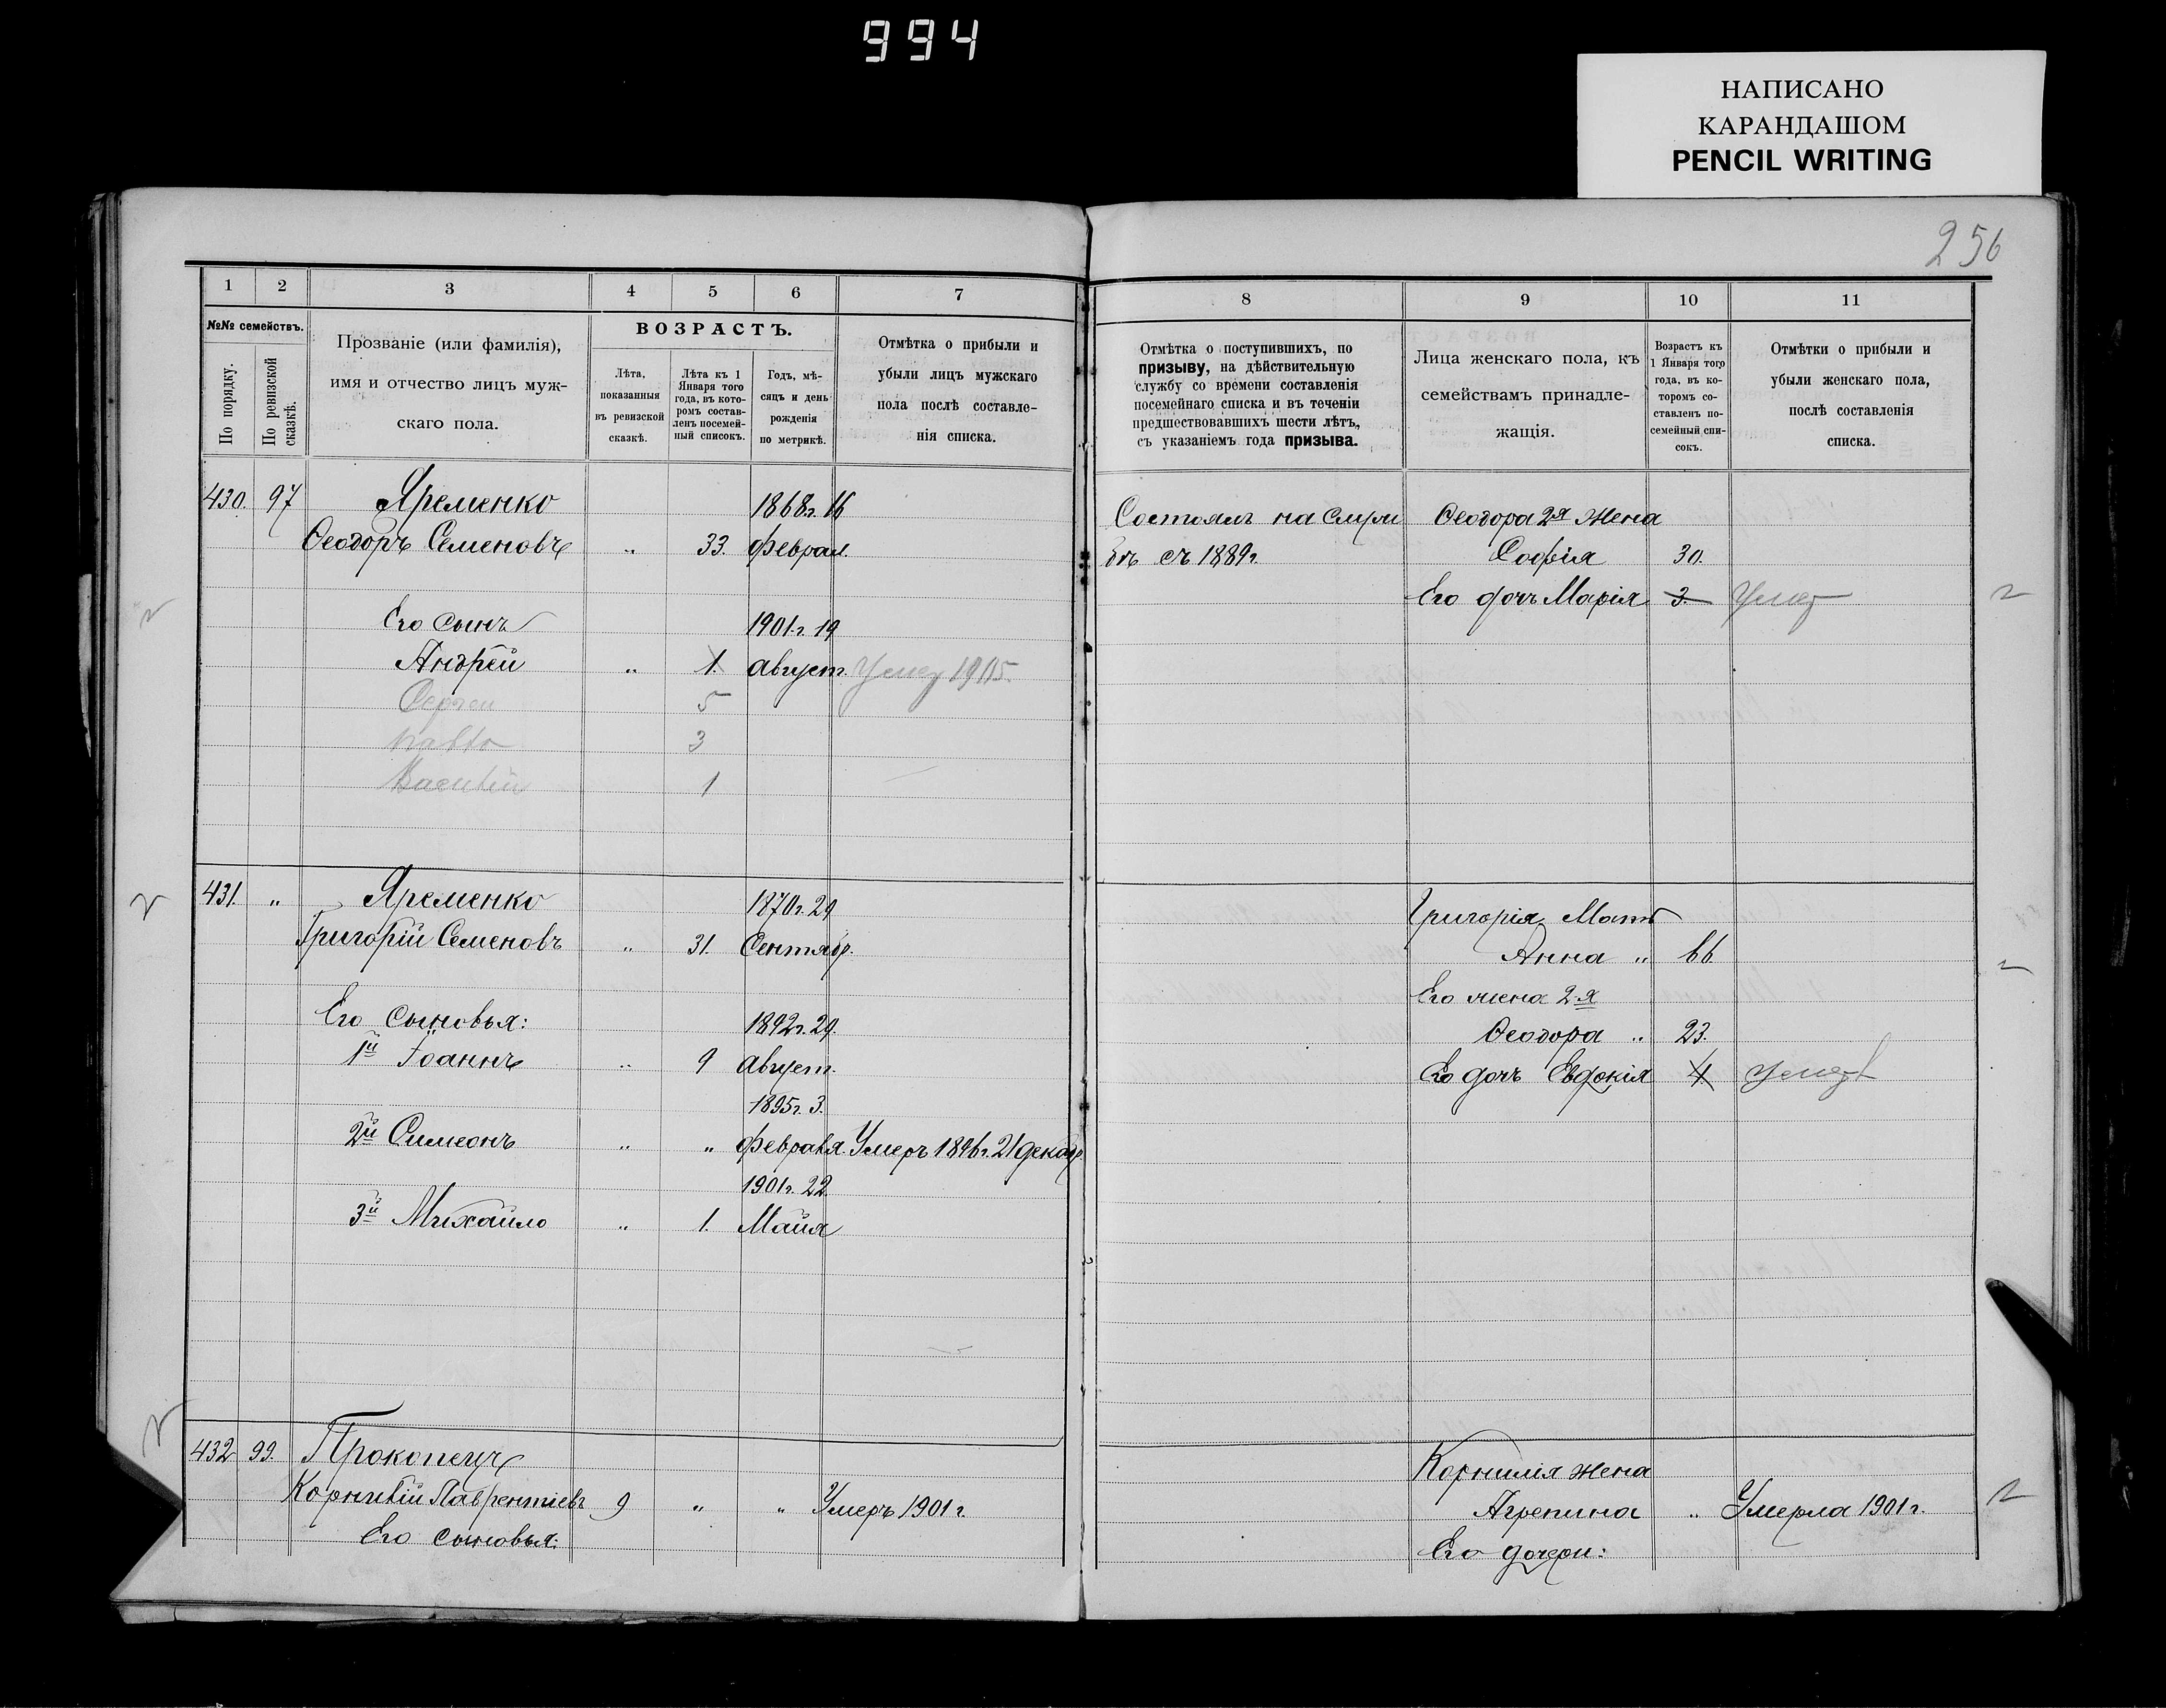 994
НАПИСАНО
КАРАНДАШОМ
PENCIL WRITING
256
1 2 3 4 5 6 7
№№ семействъ.
По порядку.
По ревизской сказкѣ.
Прозваніе (или фамилія),
имя и отчество лицъ муж-
скаго пола.
ВОЗРАСТЪ.
Лѣта,
показанныя
въ ревизской
сказкѣ.
Лѣта къ 1
Января того
года, въ кото-
ромъ состав-
ленъ посемей-
ный списокъ.
Годъ, мѣ-
сяцъ и день
рожденія
по метрикѣ.
Отмѣтка о прибыли и
убыли лицъ мужскаго
пола послѣ составле-
нія списка.
430. 97 Яременко 1868г. 16
Ѳеодоръ Семеновъ " 33. Феврал.
Его сынъ 1901г. 19
Андрей " 1. Август. Умер 1905.
Сергей 5
3
Василий 1
431. " Яременко 1870г. 29
Григорій Семеновъ " 31. Сентябр.
Его сыновья: 1892г. 29.
1й Іоаннъ " 9 Август.
1895г. 3.
2й Симеонъ " " Февраля. Умеръ 1896г. 21 декабр.
1901г. 22.
3й Михайло " 1. Майя
432 99. Прокопецъ
Корнилій Лаврентіевъ 9 " " Умеръ 1901г.
Его сыновья:
8 9 10 11
Отмѣтка о поступившихъ, по
призыву, на дѣйствительную
службу со времени составленія
посемейнаго списка и въ теченіи
предшествовавшихъ шести лѣтъ,
съ указаніемъ года призыва.
Лица женскаго пола, къ
семействамъ принадле-
жащія.
Возрастъ къ
1 Января того
года, въ ко-
торомъ со-
ставленъ по-
семейный спи-
сокъ.
Отмѣтки о прибыли и
убыли женскаго пола,
послѣ составленія
списка.
Состоялъ на Ѳеодора 2я Жена
съ 1889г. Софія 30.
Его дочь Марія 3. Умер
Григорія Мать
Анна " 66
Его жена 2я
Ѳеодора " 23.
Его дочь Евдокія 4 умер
Корнилія жена
Агрепина " Умерла 1901г.
Его дочери: